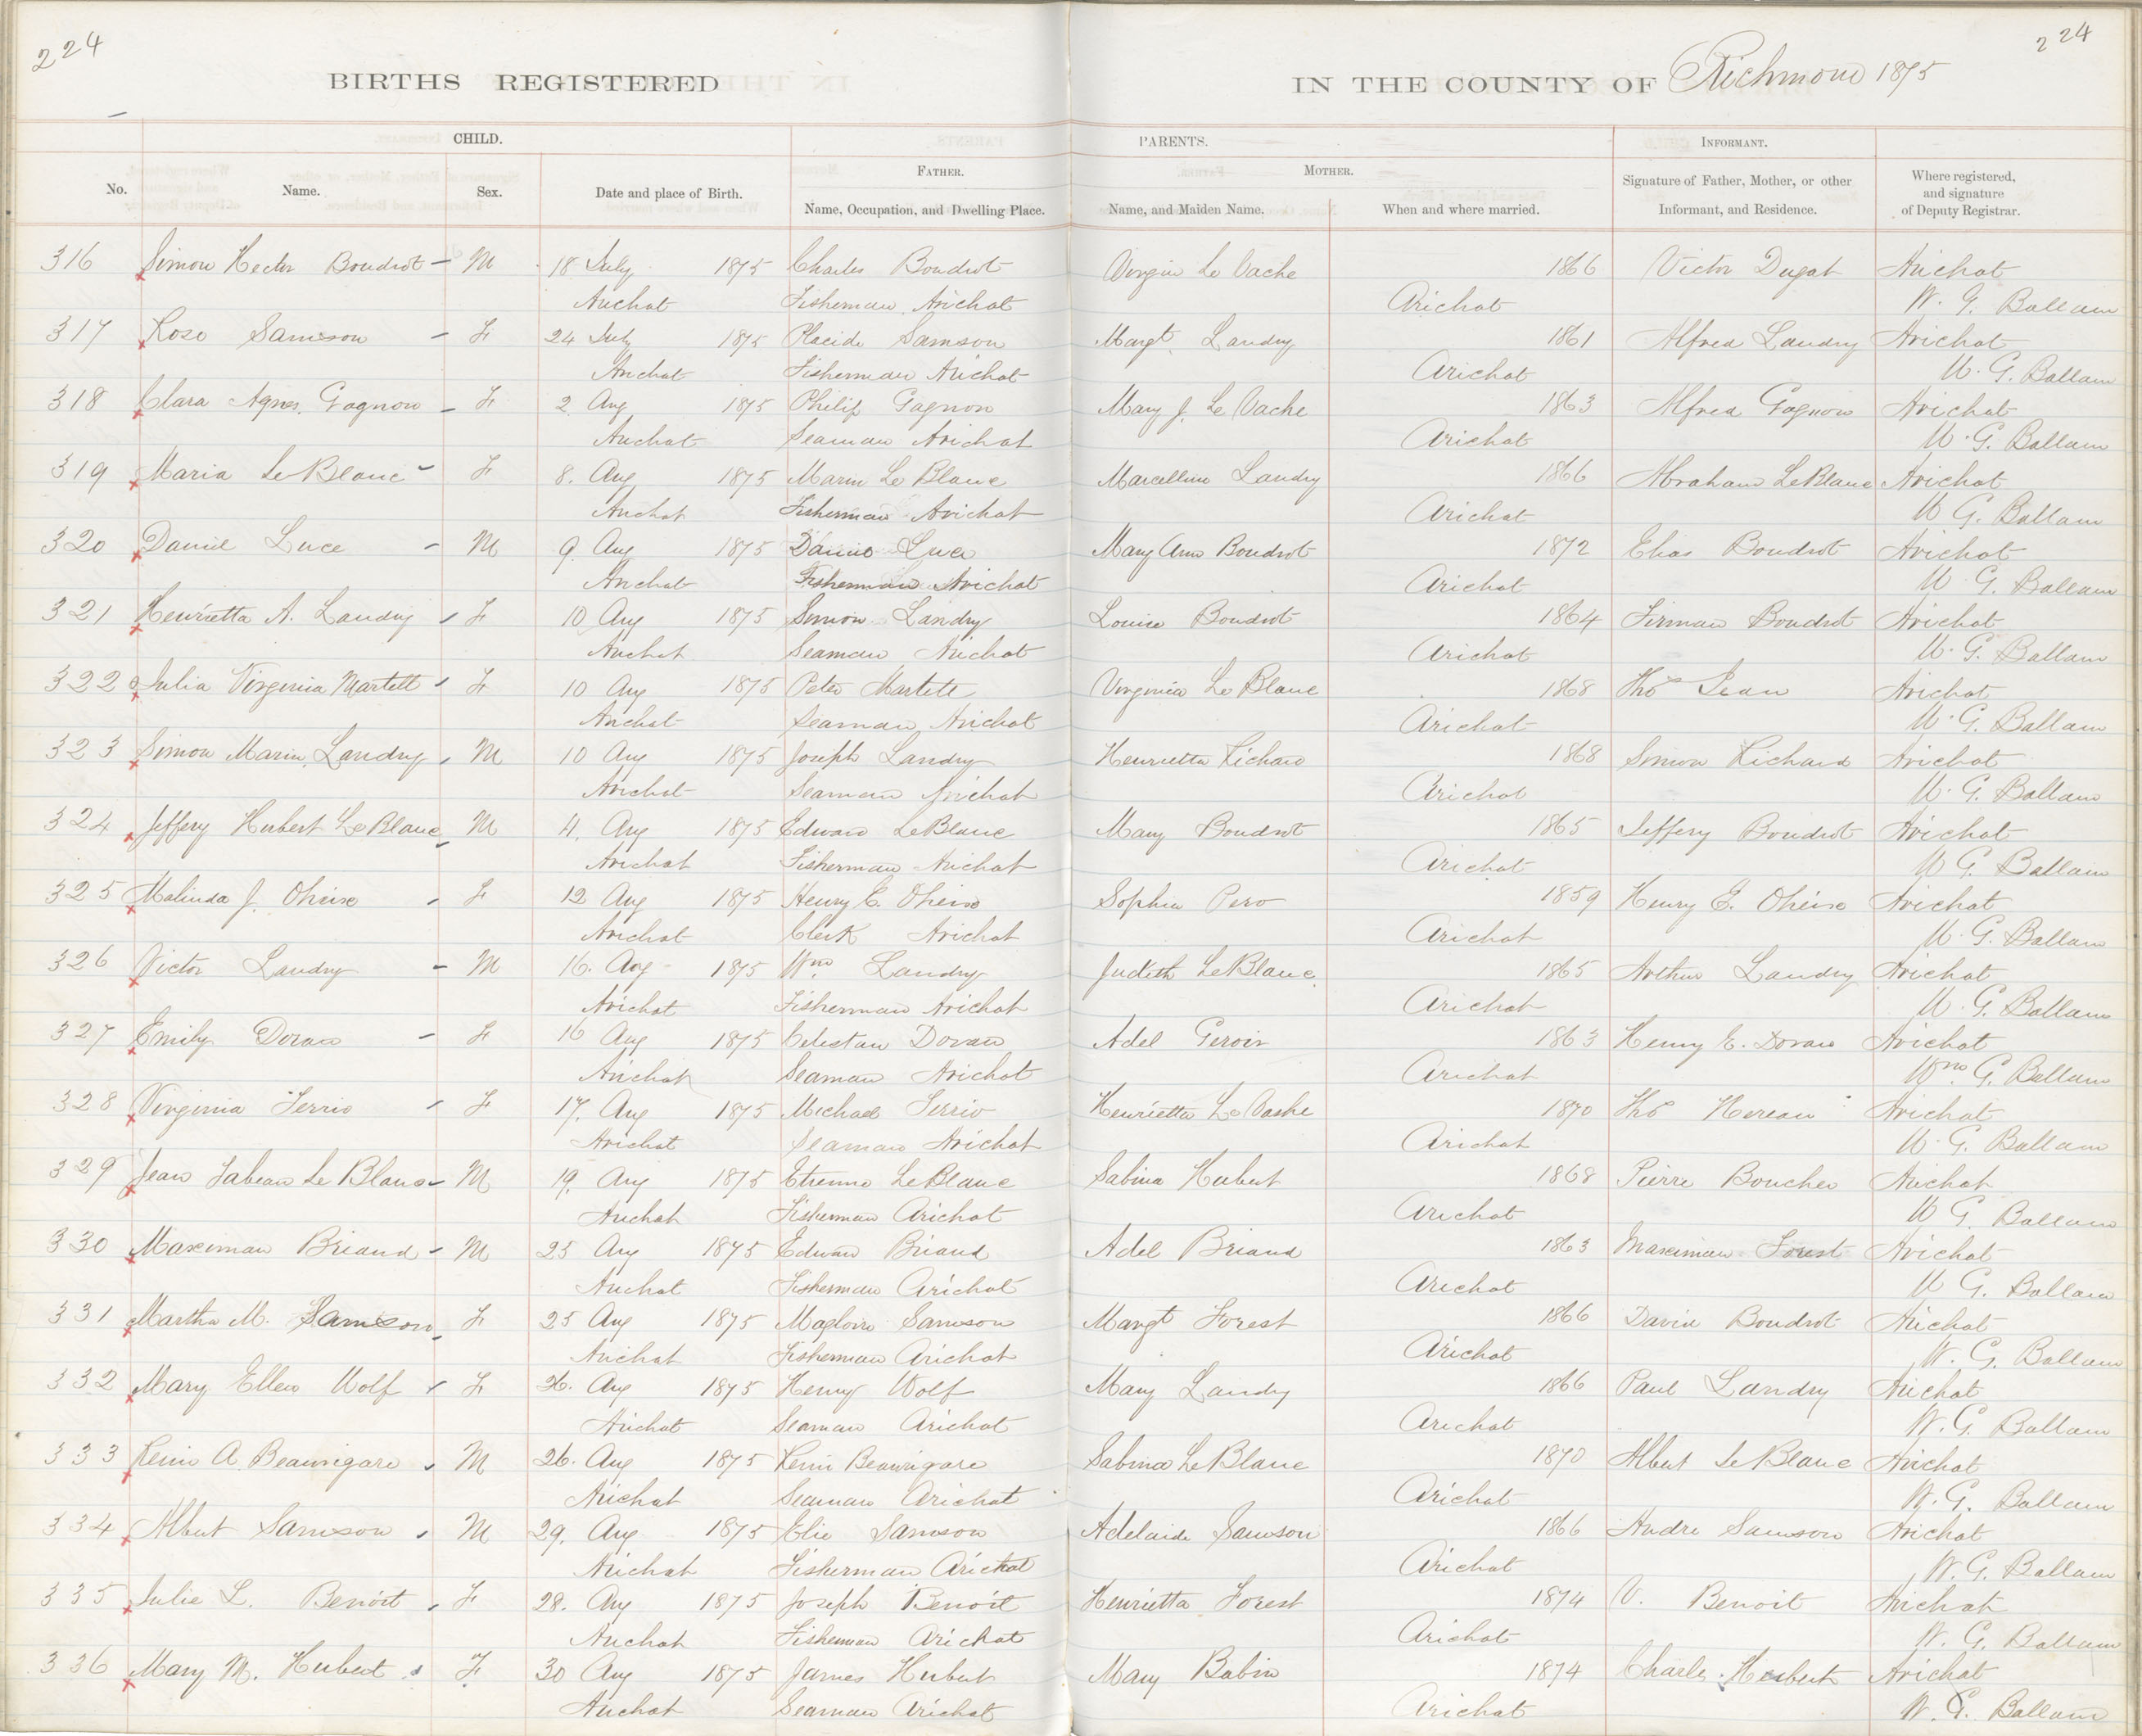 224
224
BIRTHS REGISTERED IN THE COUNTY OF Richmond 1875
CHILD. PARENTS. INFORMANT.
FATHER. MOTHER.
No. Name. Sex. Date and place of Birth. Name, Occupation, and Dwelling Place. Name, and Maiden Name. When and where married. Signature of Father, Mother, or other Informant, and Residence. Where registered, and signature of Deputy Registrar.
316 Simon Hector Boudrot - M 18 July 1875 Charles Boudrot Virgin Le Vache 1866 Victor Dugat Arichat
Arichat Fisherman Arichat Arichat W. G. Ballam
317 Rose Samson - F 24 July 1875 Placide Samson Margt Landry 1861 Alfred Landry Arichat
Arichat Fisherman Arichat Arichat W. G. Ballam
318 Clara Agnes Gagnon - F 2 Aug 1875 Philip Gagnon Mary J. Le Vache 1863 Alfred Gagnon Arichat
Arichat Seaman Arichat Arichat W. G. Ballam
319 Maria LeBlanc - F 8. Aug 1875 Marin Le Blanc Marcelline Landry 1866 Abraham LeBlanc Arichat
Arichat Fisherman Arichat Arichat W G. Ballam
320 Daniel Luce - M 9 Aug 1875 Daniel Luce Mary Ann Boudrot 1872 Elias Boudrot Arichat
Arichat Fisherman Arichat Arichat W. G. Ballam
321 Henrietta A. Landry - F 10 Aug 1875 Simon Landry Louise Boudrot 1864 Firman Boudrot Arichat
Arichat Seaman Arichat Arichat W. G. Ballam
322 Julia Virginia Martell - F 10 Aug 1875 Peter Martell Virginia Le Blanc 1868 Thos Jean Arichat
Arichat Seaman Arichat Arichat W. G. Ballam
323 Simon Marin Landry - M 10 Aug 1875 Joseph Landry Henrietta Richard 1868 Simon Richard Arichat
Arichat Seaman Arichat Arichat W. G. Ballam
324 Jeffery Hubert LeBlanc - M 4. Aug 1875 Edward LeBlanc Mary Boudrot 1865 Jeffery Boudrot Arichat
Arichat Fisherman Arichat Arichat W G. Ballam
325 Malinda J. - F 12 Aug 1875 Henry E. Sophia Pero 1859 Henry E. Arichat
Arichat Clerk Arichat Arichat W. G. Ballam
326 Victor Landry - M 16. Aug 1875 Wm Landry Judith LeBlanc 1865 Arthur Landry Arichat
Arichat Fisherman Arichat Arichat W. G. Ballam
327 Emily Doran - F 16 Aug 1875 Celestan Doran Adel Gerois 1863 Henry E. Doran Arichat
Arichat Seaman Arichat Arichat Wm. G. Ballam
328 Virginia Terrio - F 17. Aug 1875 Michael Terrio Henrietta Le Vashe 1870 Thos Arichat
Arichat Seaman Arichat Arichat W. G. Ballam
329 Jean Fabean Le Blanc - M 19. Aug 1875 Etienne LeBlanc Sabina Hubert 1868 Pierre Boucher Arichat
Arichat Fisherman Arichat Arichat W G. Ballam
330 Maximan Briand - M 25 Aug 1875 Edward Briand Adel Briand 1863 Maximan Forest Arichat
Arichat Fisherman Arichat Arichat W G. Ballam
331 Martha M. Samson - F 25 Aug 1875 Magloire Samson Margt Forest 1866 David Boudrot Arichat
Arichat Fisherman Arichat Arichat W. G. Ballam
332 Mary Ellen Wolf - F 26. Aug 1875 Henry Wolf Mary Landry 1866 Paul Landry Arichat
Arichat Seaman Arichat Arichat W. G. Ballam
333 Remi A Beaurigare - M 26. Aug 1875 Remi Beaurigare Sabina LeBlanc 1870 Albert LeBlanc Arichat
Arichat Seaman Arichat Arichat W. G. Ballam
334 Albert Samson - M 29. Aug 1875 Elie Samson Adelaide Samson 1866 Andre Samson Arichat
Arichat Fisherman Arichat Arichat W. G. Ballam
335 Julie L. Benoit - F 28. Aug 1875 Joseph Benoit Henrietta Forest 1874 V. Benoit Arichat
Arichat Fisherman Arichat Arichat W. G. Ballam
336 Mary M. Hubert - F 30 Aug 1875 James Hubert Mary Babin 1874 Charles Hubert Arichat
Arichat Seaman Arichat Arichat W. G. Ballam